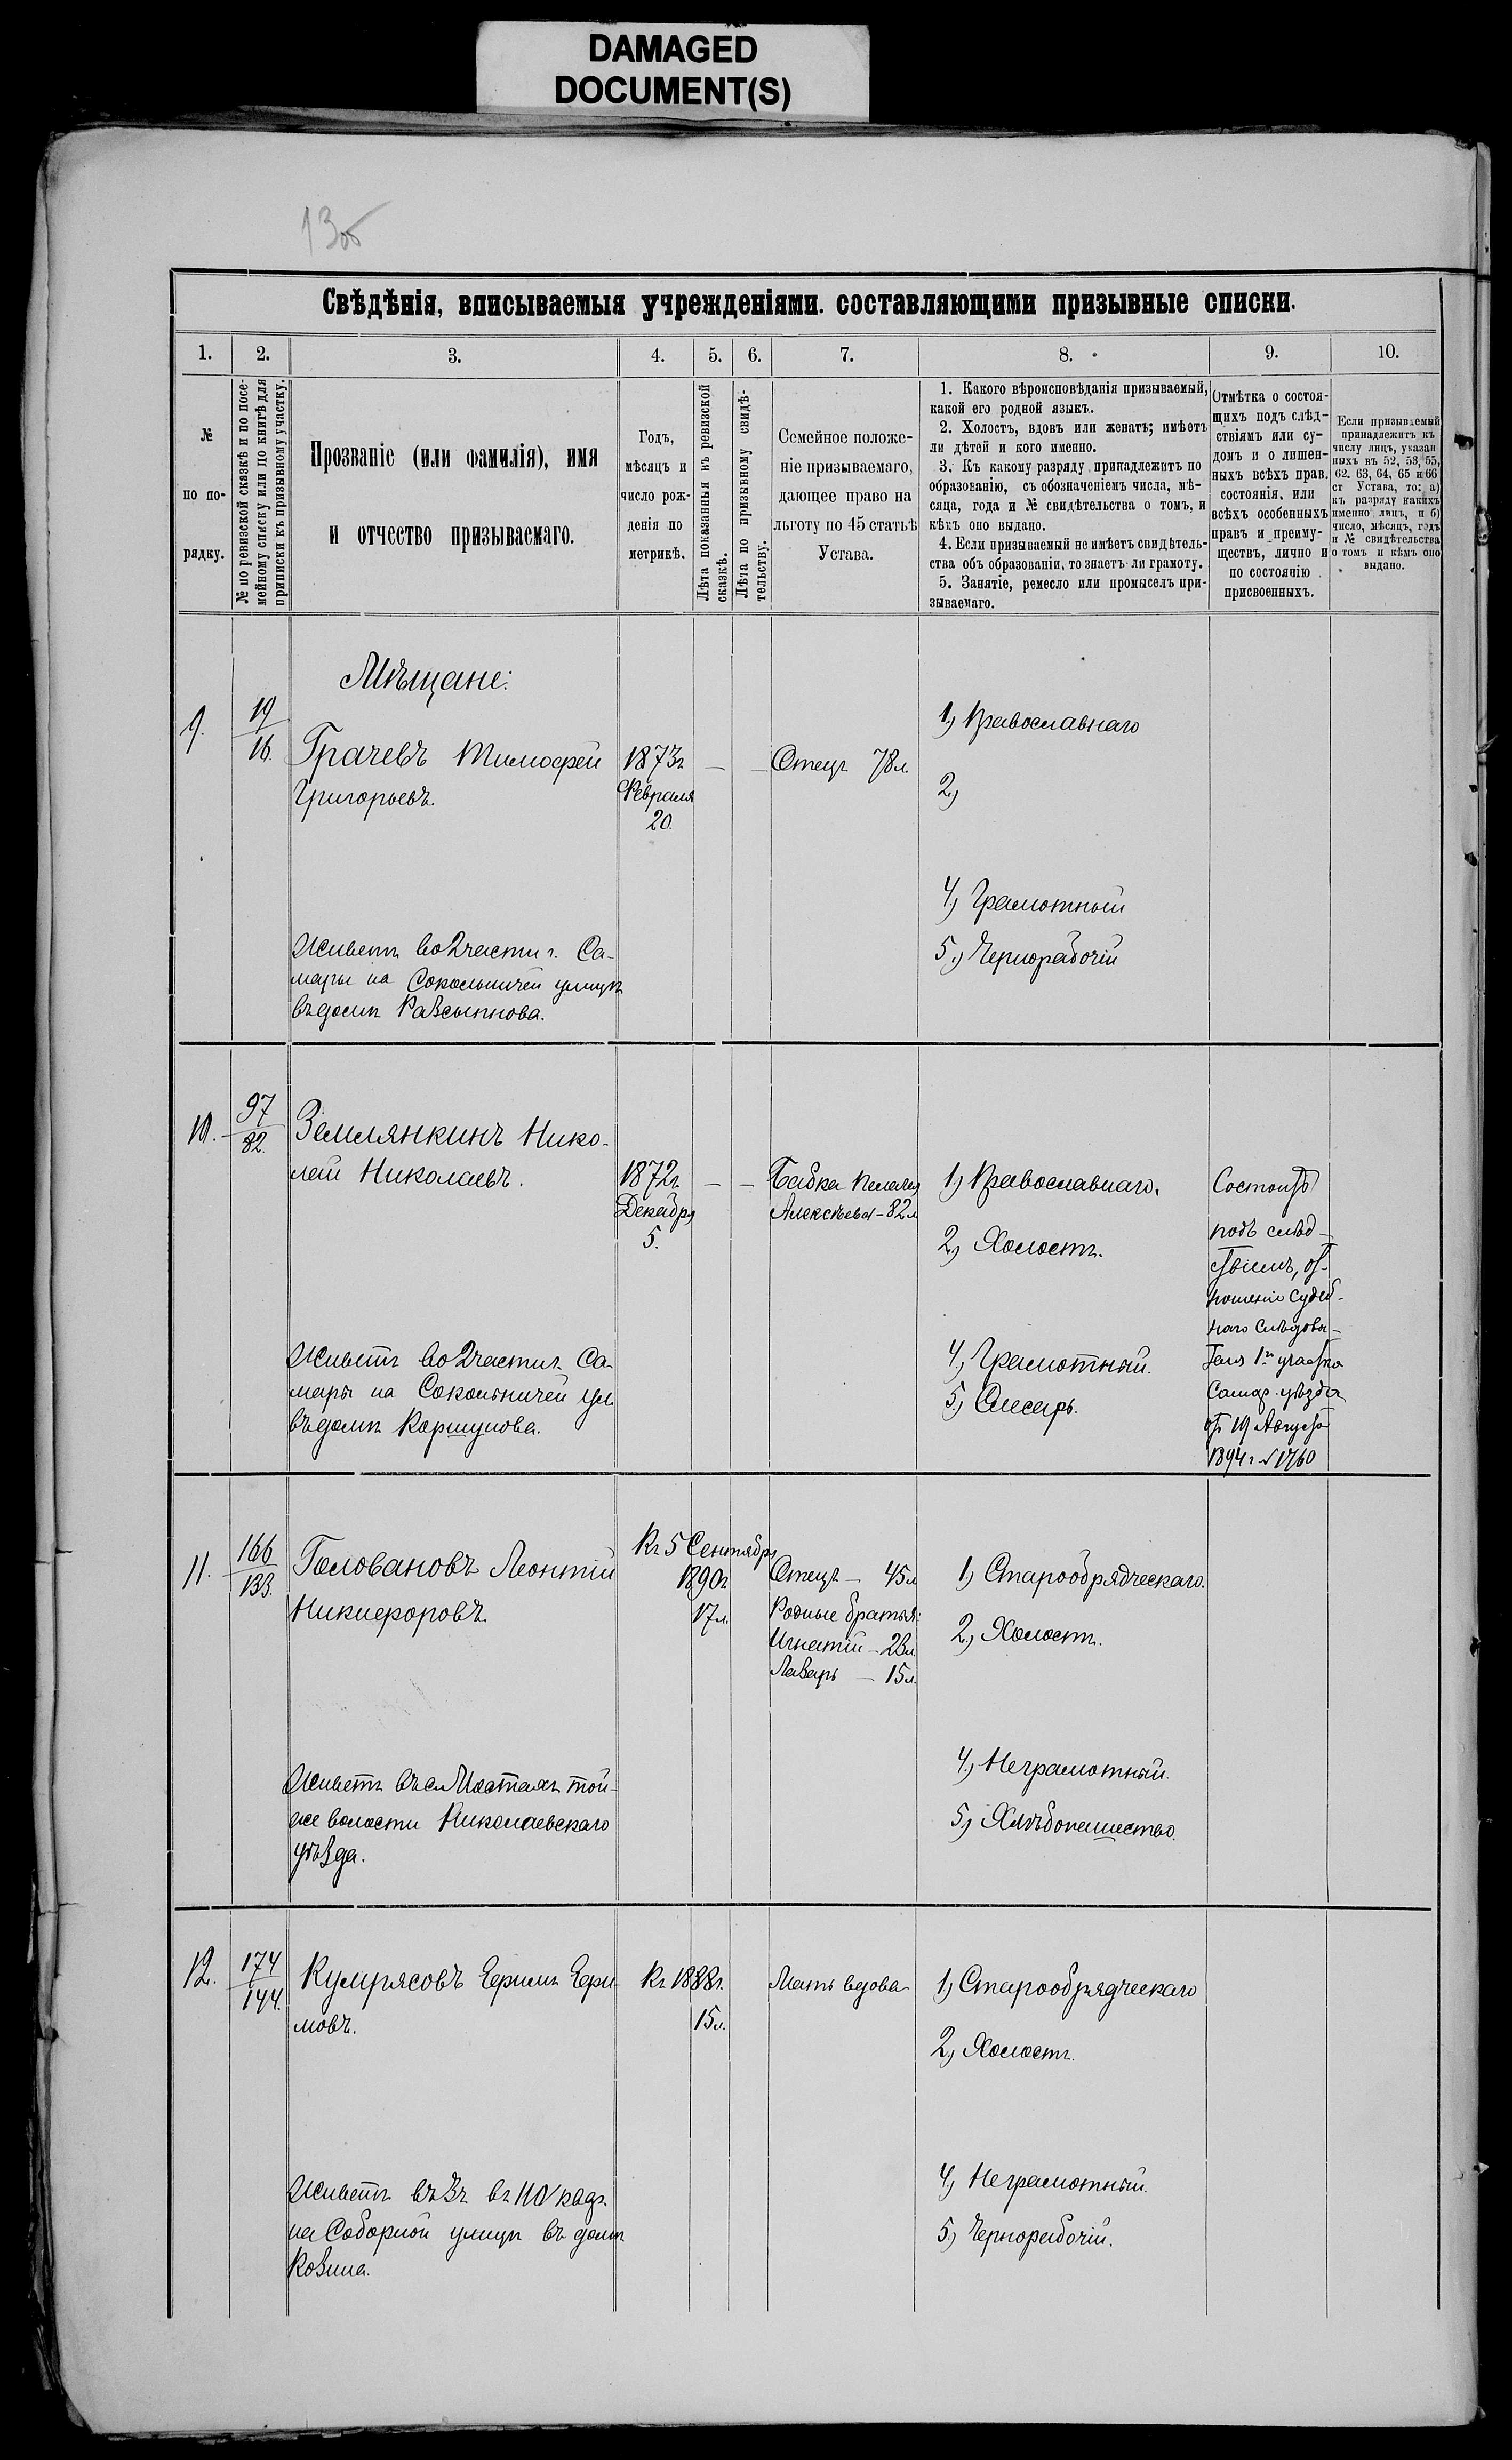 DAMAGED
DOCUMENT(S)
13об
Свѣдѣнія, вписываемыя учрежденіями. составляющими призывные списки.
1. 2. 3. 4. 5. 6. 7. 8. 9. 10.
№
по по-
рядку.
№ по ревизской сказкѣ и по посе-
мейному списку или по книгѣ для
приписки къ призывному участку.
Прозваніе (или фамилія), имя
и отчество призываемаго.
Годъ,
мѣсяцъ и
число рож-
денія по
метрикѣ.
Лѣта показанныя къ ревизской
сказкѣ.
Лѣта по призывному свидѣ-
тельству.
Семейное положе-
ніе призываемаго,
дающее право на
льготу по 45 статьѣ
Устава.
1. Какого вѣроисповѣданія призываемый,
какой его родной языкъ.
2. Холостъ, вдовъ или женатъ; имѣетъ
ли дѣтей и кого именно.
3. Къ какому разряду принадлежитъ по
образованію, съ обозначеніемъ числа, мѣ-
сяца, года и № свидѣтельства о томъ, и
кѣмъ оно выдано.
4. Если призываемый не имѣетъ свидѣтель-
ства объ образованіи, то знаетъ ли грамоту.
5. Занятіе, ремесло или промыселъ при-
зываемаго.
Отмѣтка о состоя-
щихъ подъ слѣд-
ствіямъ или су-
домъ и о лишен-
ныхъ всѣхъ прав.
состоянія, или
всѣхъ особенныхъ
правъ и преиму-
ществъ, лично и
по состоянію
присвоенныхъ.
Если призываемый
принадлежитъ къ
числу лицъ, указан
ныхъ въ 52, 53, 55,
62. 63, 64, 65 и 66
ст Устава, то: а)
къ разряду какихъ
именно лицъ, и б)
число, мѣсяцъ, годъ
и № свидѣтельства
о томъ и кѣмъ оно
выдано.
Мѣщане:
9. 19/16. Грачевъ Тимофей
Григорьевъ.
1873г
Февраля
20.
— —
Отецъ 78 л.
1.) Православнаго
2.)
4.) Грамотный
5.) Чернорабочій
Живетъ во 2 части г. Са-
мары на Сокольничей улицѣ
въ домѣ Разсыпнова.
10. 97/82. Землянкинъ Нико-
лай Николаевъ.
1872г.
Декабря
5.
— —
Бабка Пелагея
Алексѣева - 82 л
1.) Православнаго.
2.) Холостъ.
4.) Грамотный.
5.) Слесарь.
Состоитъ
подъ слѣд-
ствіемъ, от-
ношеніе Судеб-
наго Слѣдова-
теля 1го участка
Самар. уѣзда
отъ 19 Августа
1894 г № 1760
Живетъ во 2 части г. Са-
мары на Сокольничей ул.
въ домѣ Коршунова.
11. 166/133. Головановъ Леонтій
Никифоровъ.
Къ 5 Сентября
1890г
17 л.
Отецъ — 45 л
Родные братья:
Игнатій — 23 л
Лазарь — 15 л.
1.) Старообрядческаго.
2.) Холостъ.
4.) Неграмотный.
5.) Хлѣбопашество.
Живетъ въ сел Мостахъ той-
же волости Николаевскаго
уѣзда.
12. 174/144. Кумрясовъ Ефимъ Ефи-
мовъ.
Къ 1888г.
15 л.
Мать вдова
1.) Старообрядческаго
2.) Холостъ.
4.) Неграмотный.
5.) Чернорабочій.
Живетъ въ 3ч. въ 110 квар.
на Соборной улицѣ въ домѣ
Козина.